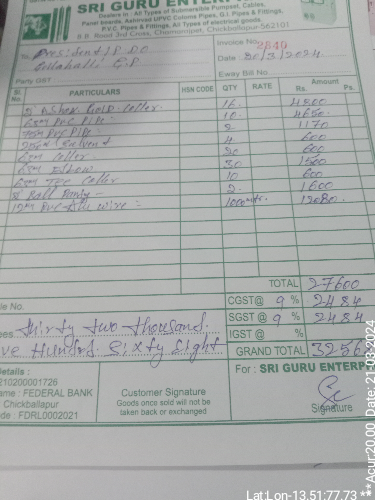 SRI GURU ENTERPR
Dealers in : All Types of Submersible Pumpset, Cables,
Panel boards, Aashirvad UPVC Coloms Pipes, G.I. Pipes & Fittings,
P.V.C. Pipes & Fittings, All Types of electrical goods.
B.B. Road 3rd Cross, Chamarajpet, Chickballapur-562101
To, President / P.D.O
G.P
Invoice No. 2840
Date : 20/3/2024
Party GST :
Eway Bill No.
Sl. No. PARTICULARS HSN CODE QTY RATE Amount Rs. Ps.
16 4800
63m Pvc Pipe 10 4650
75m Pvc Pipe 2 1170
4 600
63m Coller 20 600
63m Elbow 30 1500
63m Tee 10 600
2 1600
wire 1000mtr. 12080
TOTAL 27600
CGST@ 9 % 2484
SGST@ 9 % 2484
IGST@ %
GRAND TOTAL 3256
le No.
ees Thirty two thousand
ve Hundred Sixty Eight
Details :
210200001726
ame : FEDERAL BANK
Chickballapur
ode : FDRL0002021
Customer Signature
Goods once sold will not be
taken back or exchanged
For : SRI GURU ENTERP
Signature
Lat:Lon-13.51:77.73 **Acur:20.00 Date: 21-03-2024